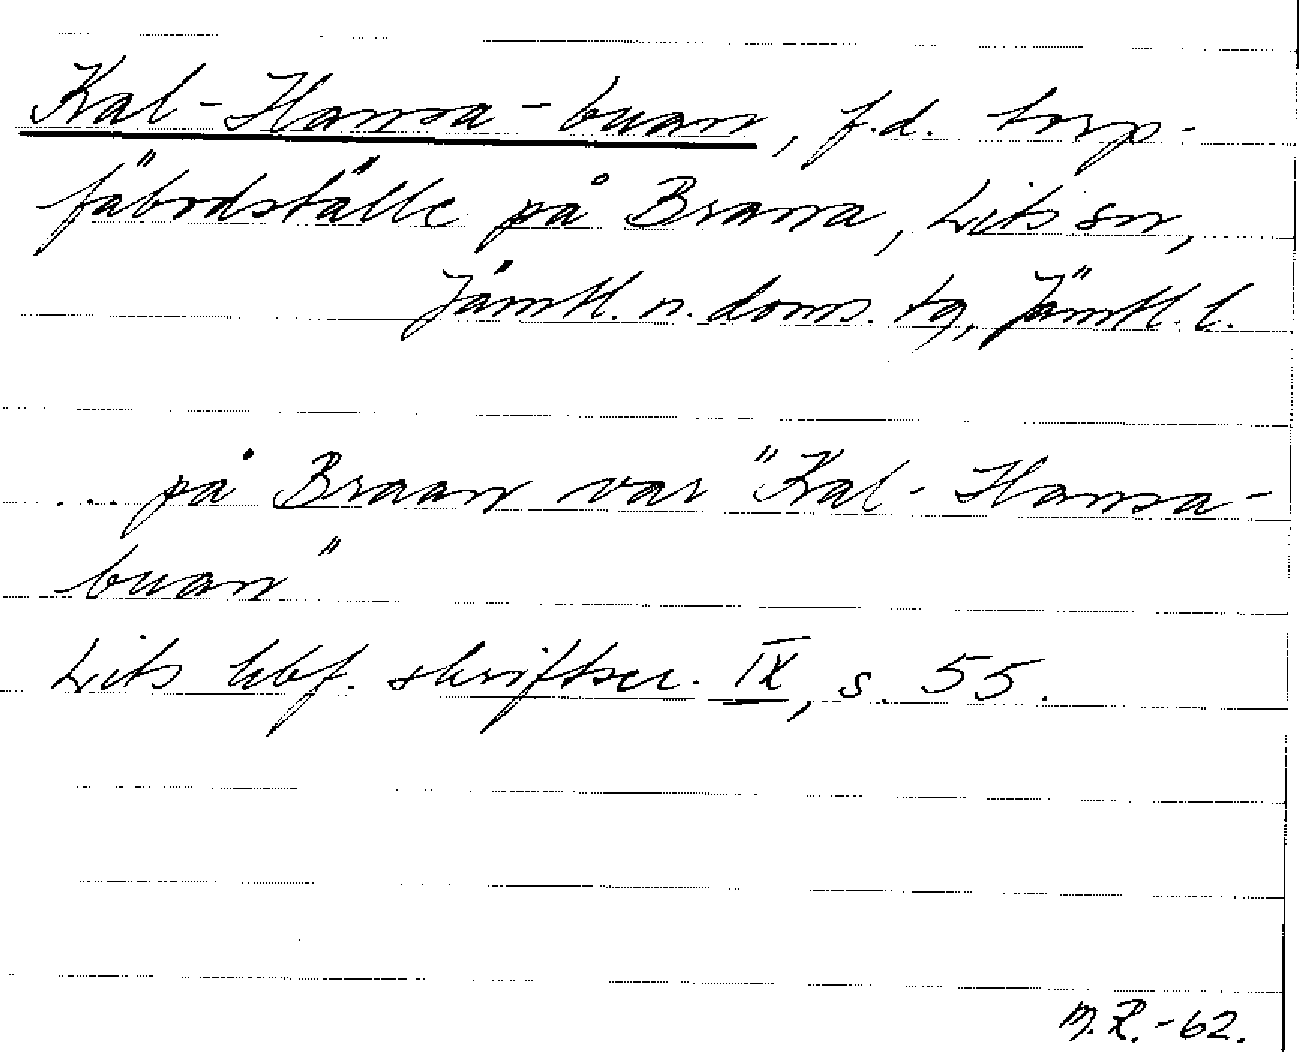 Kal-Hansa-buan, f.d. torp-
fäbodställe på Brana, Lits sn,
Jämtl. n. doms. tg, Jämtl. l.
... på Braan var "Kal-Hansa-
buan"
Lits hbf. skriftser. IX, s. 55.
M.R.-62.